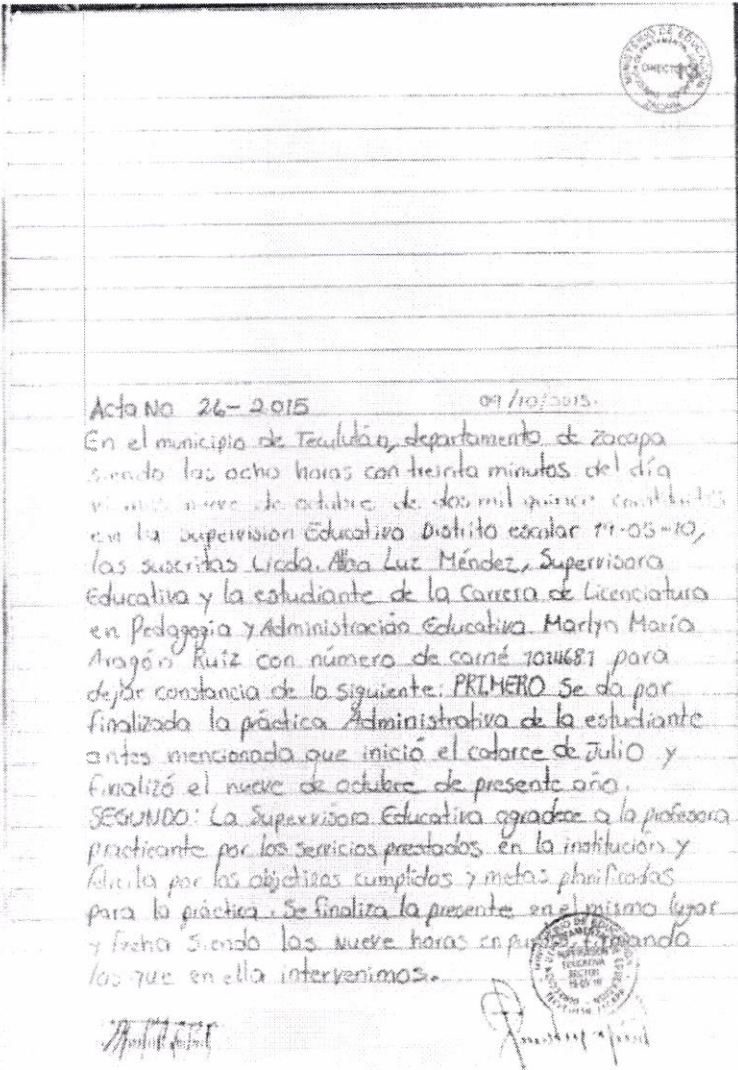 MINISTERIO DE EDUCACION
13
Acta No 26-2015 09/10/2015.
En el municipio de Teculután, departamento de Zacapa
siendo las ocho horas con treinta minutos del día
viernes nueve de octubre de dos mil quince
en la Supervision Educativa Distrito escolar 19-05-10,
las suscritas Licda. Alba Luz Méndez, Supervisora
Educativa y la estudiante de la Carrera de Licenciatura
en Pedagogia y Administración Educativa Marlyn María
Aragón Ruíz con número de carné para
dejar constancia de lo siguiente: PRIMERO Se da por
finalizada la práctica Administrativa de la estudiante
antes mencionada que inició el catorce de Julio y
finalizó el nueve de octubre de presente año.
SEGUNDO: La Supervisora Educativa agradece a la profesora
practicante por los servicios prestados en la institución y
felicita por los objetivos cumplidos y metas planificadas
para la práctica. Se finaliza la presente en el mismo lugar
y fecha siendo las nueve horas en punto, firmando
las que en ella intervenimos.
SUPERVISION
EDUCATIVA